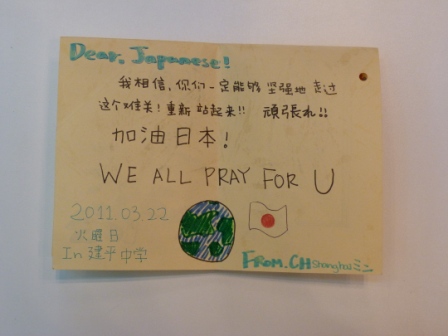 Dear, Japanese!
我相信,你们一定能够坚强地走过
这个难关!重新站起来!! 頑張れ!!
加油日本!
WE ALL PRAY FOR U
2011.03.22
火曜日
In 建平中学
FROM.CH Shanghai ミニ